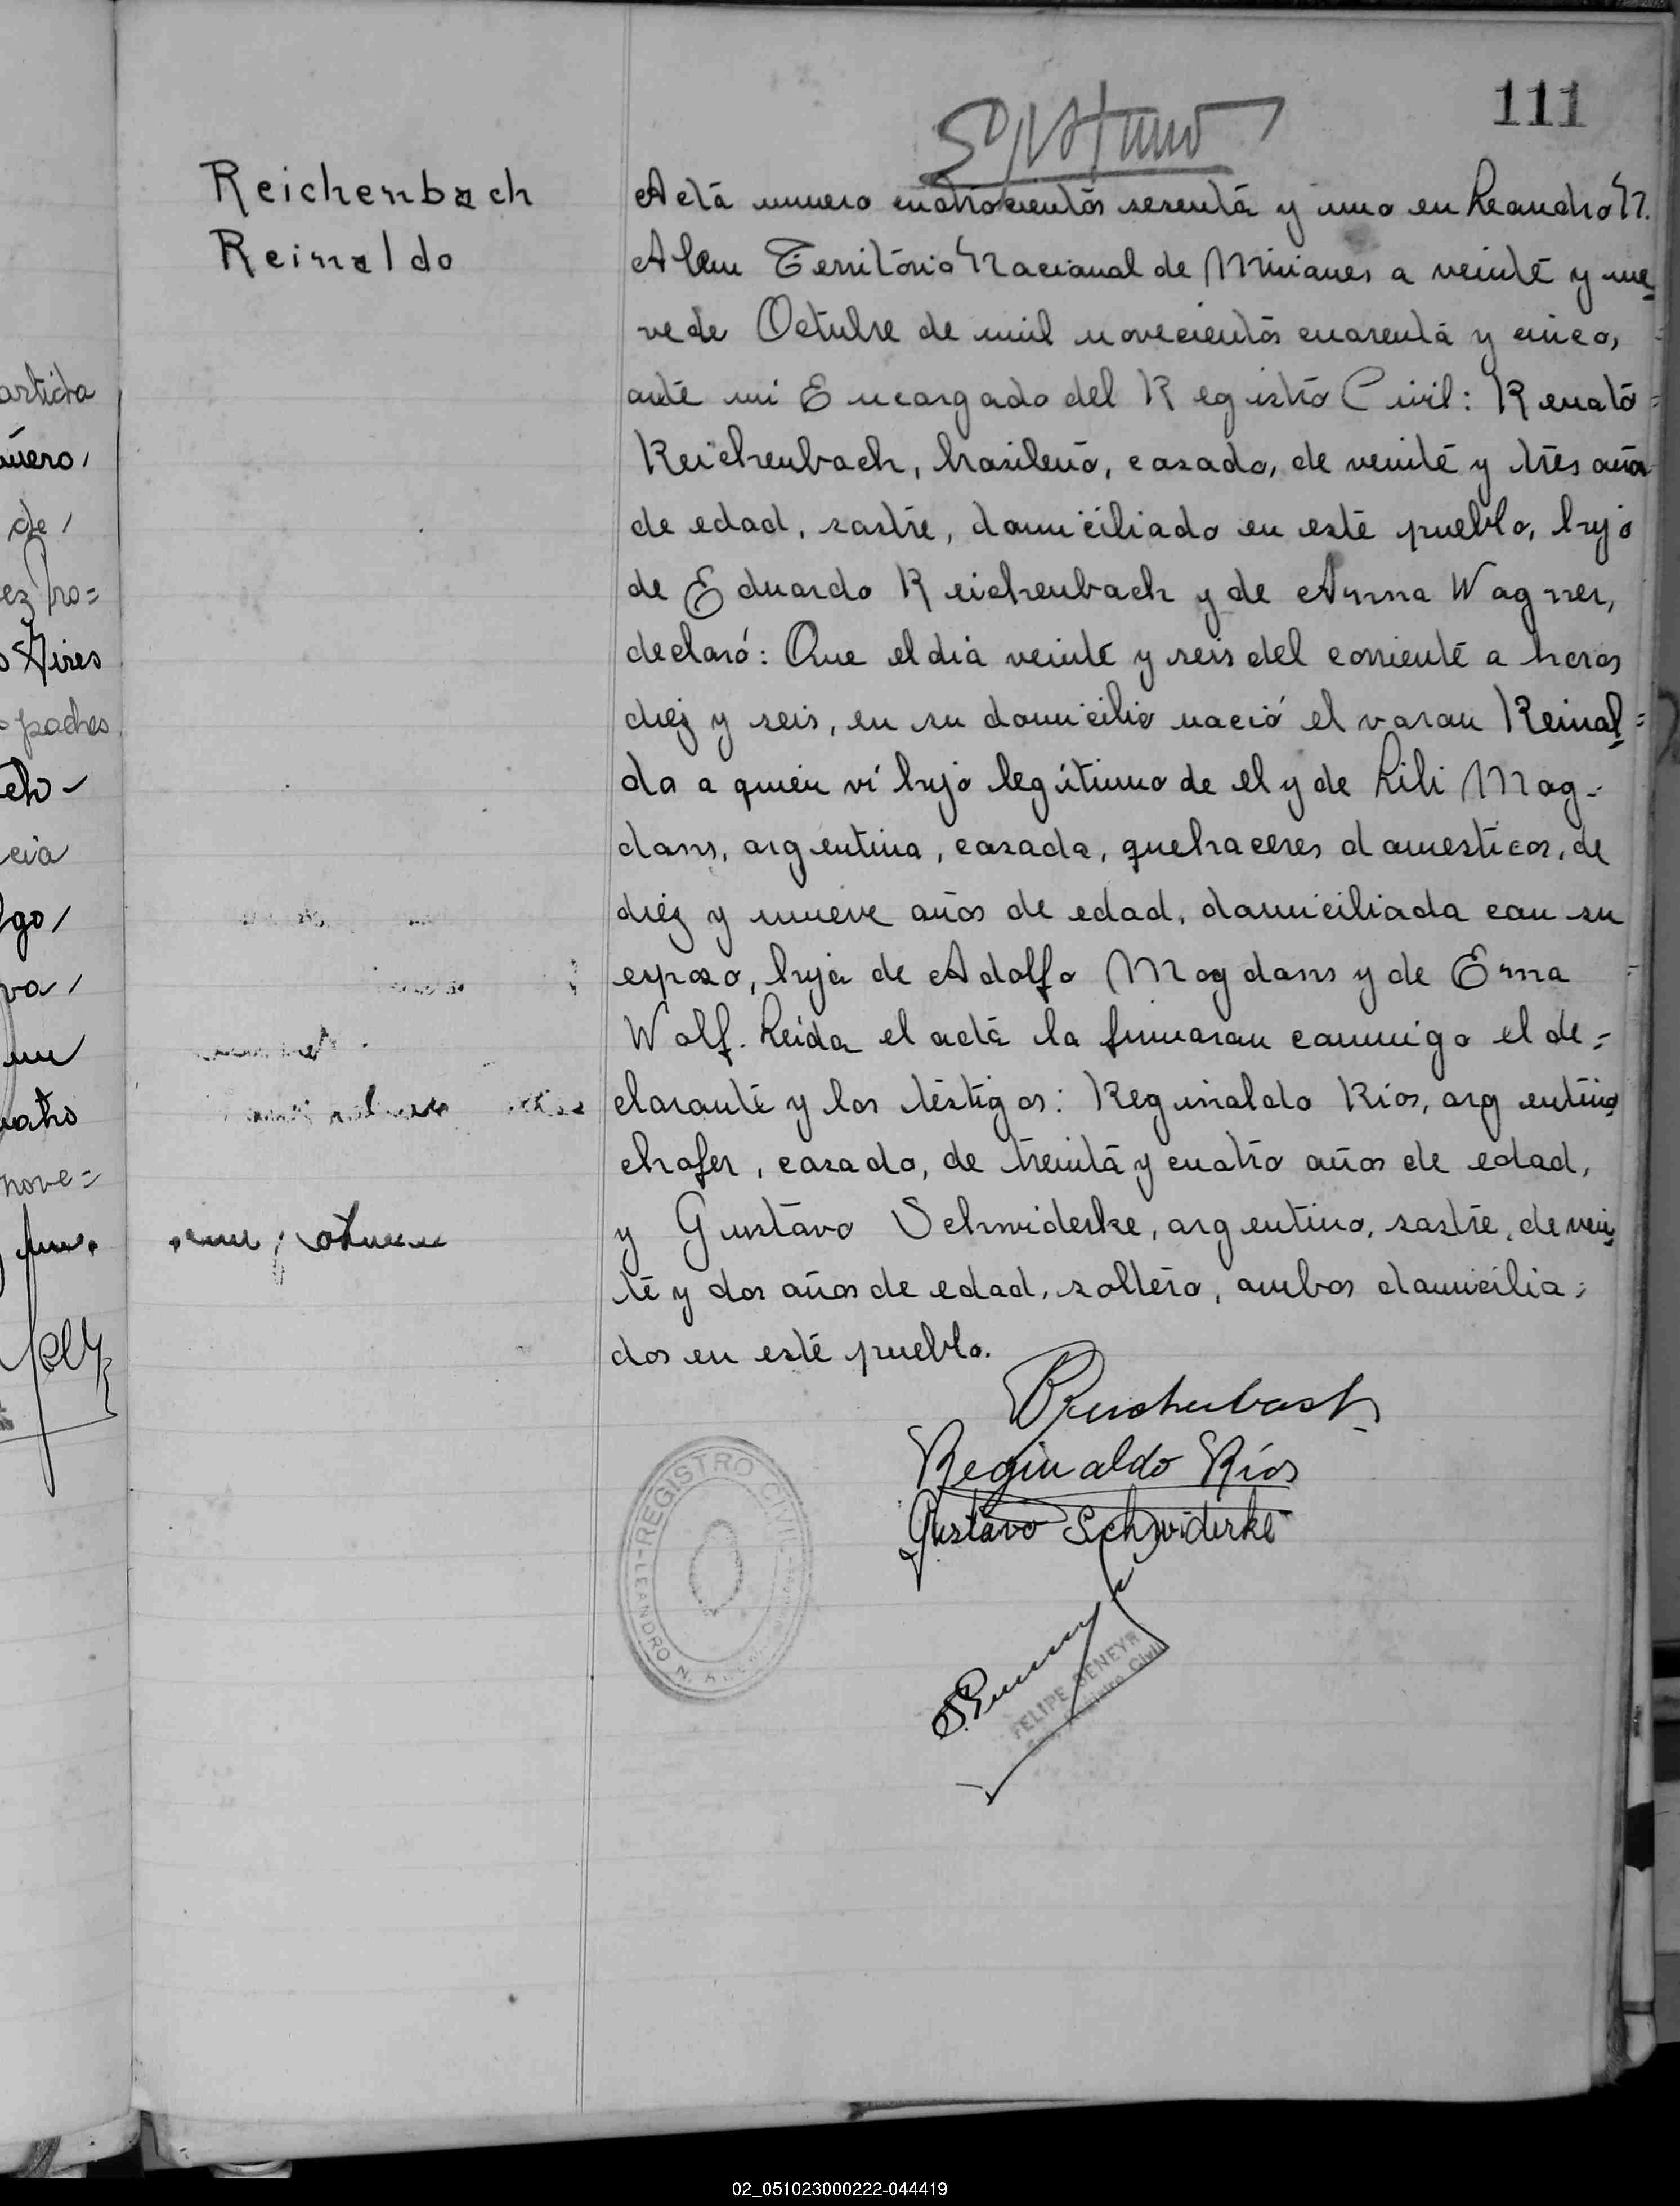 111
Reichenbach
Reinaldo
Acta numero cuatrocientos sesenta y uno en Leandro N.
Alem Territorio Nacional de Misiones a veinte y nue
ve de Octubre de mil novecientos cuarenta y cinco,
ante mi Encargado del Registro Civil: Renato
Reichenbach, brasileño, casado, de veinte y tres años
de edad, sastre, domiciliado en este pueblo, hijo
de Eduardo Reichenbach y de Anna Wagner,
declaró: Que el dia veinte y seis del corriente a horas
diez y seis, en su domicilio nació el varon Reinal=
do a quien vi hijo legítimo de el y de Lili Mag-
dans, argentina, casada, quehaceres domesticos, de
diez y nueve años de edad, domiciliada con su
esposo, hija de Adolfo Magdans y de Erna
Wolf. Leida el acta la firmaran conmigo el de=
clarante y los testigos: Reginaldo Ríos, argentino
chofer, casado, de treinta y cuatro años de edad,
y Gustavo Schwiderke, argentino, sastre, de vein
te y dos años de edad, soltero, ambos domicilia=
dos en este pueblo.
RReichenbach
Reginaldo Ríos
Gustavo Schwiderke
REGISTRO CIVIL
LEANDRO N. ALEM
FELIPE BENEYR
Registro Civil
articha
de /
Aires
padres
cia
go /
va /
nove=
02_051023000222-044419